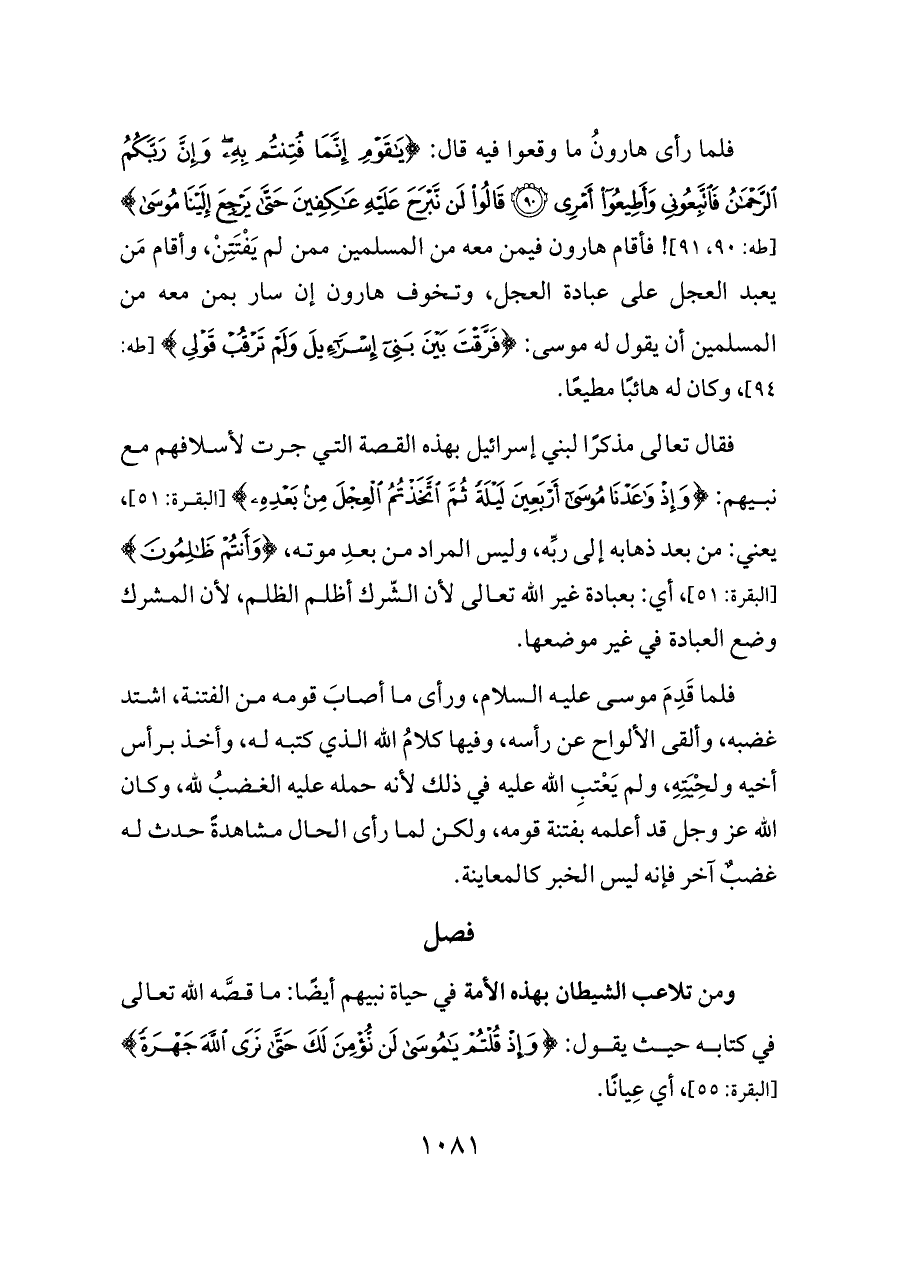 فلما رأى هارونُ ما وقعوا فيه قال: ﴿يَٰقَوْمِ إِنَّمَا فُتِنتُم بِهِۦۖ وَإِنَّ رَبَّكُمُ
ٱلرَّحْمَٰنُ فَٱتَّبِعُونِي وَأَطِيعُوٓا۟ أَمْرِى ۝٩٠ قَالُوا۟ لَن نَّبْرَحَ عَلَيْهِ عَٰكِفِينَ حَتَّىٰ يَرْجِعَ إِلَيْنَا مُوسَىٰ﴾
[طه: ٩٠، ٩١]! فأقام هارون فيمن معه من المسلمين ممن لم يَفْتَتِنْ، وأقام مَن
يعبد العجل على عبادة العجل، وتخوف هارون إن سار بمن معه من
المسلمين أن يقول له موسى: ﴿فَرَّقْتَ بَيْنَ بَنِىٓ إِسْرَٰٓءِيلَ وَلَمْ تَرْقُبْ قَوْلِى﴾ [طه:
٩٤]، وكان له هائبًا مطيعًا.
فقال تعالى مذكرًا لبني إسرائيل بهذه القصة التي جرت لأسلافهم مع
نبيهم: ﴿وَإِذْ وَٰعَدْنَا مُوسَىٰٓ أَرْبَعِينَ لَيْلَةً ثُمَّ ٱتَّخَذْتُمُ ٱلْعِجْلَ مِنۢ بَعْدِهِۦ﴾ [البقرة: ٥١]،
يعني: من بعد ذهابه إلى ربِّه، وليس المراد من بعدِ موته، ﴿وَأَنتُمْ ظَٰلِمُونَ﴾
[البقرة: ٥١]، أي: بعبادة غير الله تعالى لأن الشّرك أظلم الظلم، لأن المشرك
وضع العبادة في غير موضعها.
فلما قَدِمَ موسى عليه السلام، ورأى ما أصابَ قومه من الفتنة، اشتد
غضبه، وألقى الألواح عن رأسه، وفيها كلامُ الله الذي كتبه له، وأخذ برأس
أخيه ولحِْيَتِهِ، ولم يَعْتبِ الله عليه في ذلك لأنه حمله عليه الغضبُ لله، وكان
الله عز وجل قد أعلمه بفتنة قومه، ولكن لما رأى الحال مشاهدةً حدث له
غضبٌ آخر فإنه ليس الخبر كالمعاينة.
فصل
ومن تلاعب الشيطان بهذه الأمة في حياة نبيهم أيضًا: ما قصَّه الله تعالى
في كتابه حيث يقول: ﴿وَإِذْ قُلْتُمْ يَٰمُوسَىٰ لَن نُّؤْمِنَ لَكَ حَتَّىٰ نَرَى ٱللَّهَ جَهْرَةً﴾
[البقرة: ٥٥]، أي عِيانًا.
١٠٨١